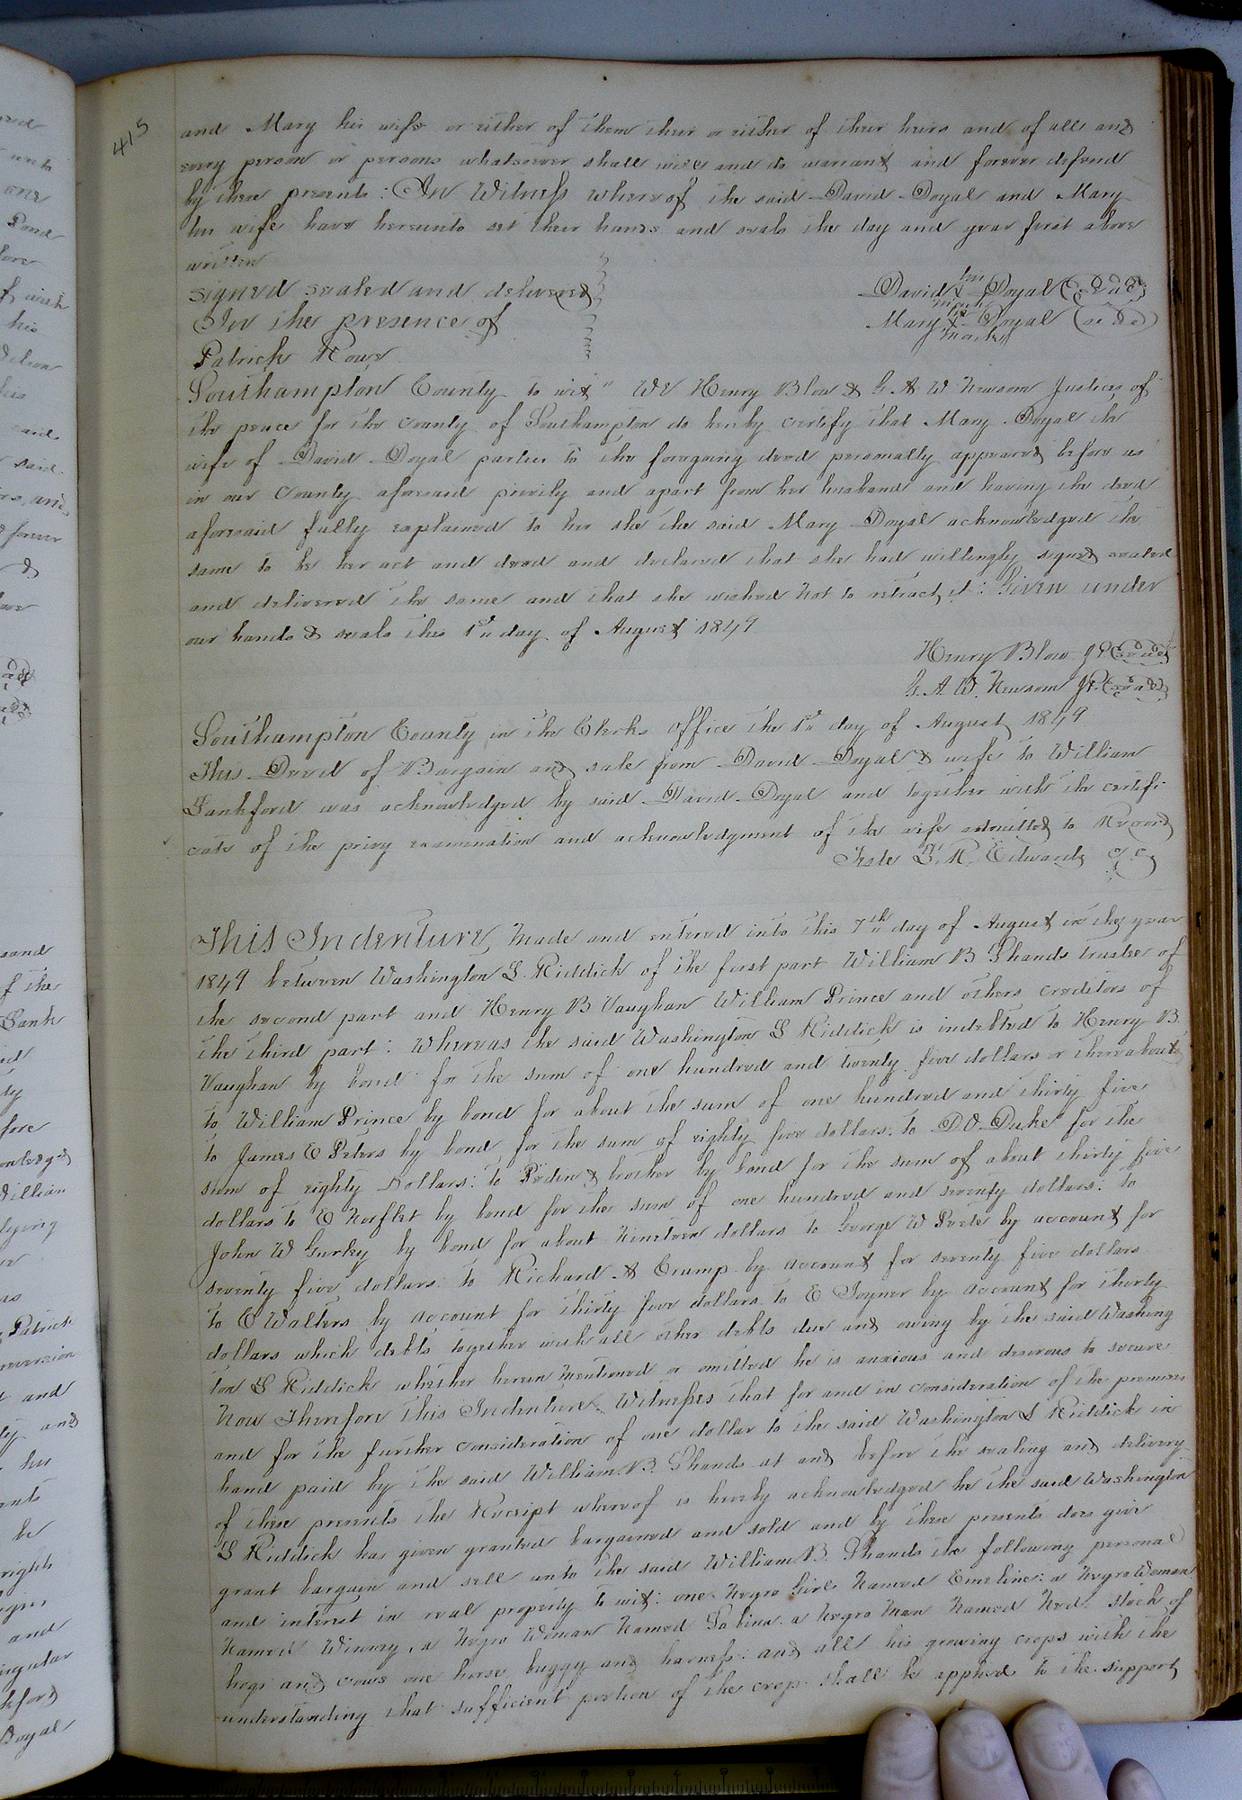 415
and Mary his wife or either of them their or either of their heirs and of all and
every person or persons whatsoever shall will and do warrant and forever defend
by these presents: In Witness whereof the said David Doyal and Mary
his wife have hereunto set their hands and seals the day and year first above
written
signed sealed and delivered
In the presence of
Patrick Rows
his
David X Doyal (seal)
mark
her
Mary X Doyal (seal)
mark
Southampton County to wit" We Henry Blow & G. A. W. Newsom Justices of
the peace for the County of Southampton do hereby certify that Mary Doyal the
wife of David Doyal parties to the foregoing deed personally appeared before us
in our County aforesaid privily and apart from her husband and having the deed
aforesaid fully explained to her she the said Mary Doyal acknowledged the
same to be her act and deed and declared that she had willingly signed sealed
and delivered the same and that she wished not to retract it: Given under
our hands & seals this 1st day of August 1849
Henry Blow JP (seal)
G. A. W. Newsom JP (seal)
Southampton County in the Clerks Office the 1st day of August 1849
This Deed of Bargain and sale from David Doyal & wife to William
Lankford was acknowledged by said David Doyal and together with the certifi-
cate of the privy examination and acknowledgment of the wife admitted to Record
Teste L. R. Edwards CC
This Indenture, Made and entered into this 7th day of August in the year
1849 between Washington L. Riddick of the first part William B Shands trustee of
the second part and Henry B Vaughan William Prince and others creditors of
the third part: Whereas the said Washington L Riddick is indebted to Henry B
Vaughan by bond for the sum of one hundred and twenty five dollars or thereabouts
to William Prince by bond for about the sum of one hundred and thirty five
to James E Peters by bond for the sum of eighty five dollars: to D O Duke for the
sum of eighty Dollars: to & brother by bond for the sum of about thirty five
dollars to E Norflet by bond for the sum of one hundred and seventy dollars: to
John W Gurley by bond for about Nineteen dollars to George W Peete by account for
seventy five dollars: to Richard A Crump by account for seventy five dollars
to E Walters by account for thirty five dollars to E Joyner by account for thirty
dollars which debts together with all other debts due and owing by the said Washing
ton L Riddick whether herein mentioned or omitted he is anxious and desirous to secure
Now Therefore This Indenture Witnesses that for and in consideration of the premises
and for the further consideration of one dollar to the said Washington L Riddick in
hand paid by the said William B. Shands at and before the sealing and delivery
of these presents the Receipt whereof is hereby acknowledged he the said Washington
L Riddick has given granted bargained and sold and by these presents does give
grant bargain and sell unto the said William B. Shands the following personal
and interest in real property to wit: one Negro Girl Named Emeline: a Negro Woman
Named Winney, a Negro Woman Named Sabina: a Negro Man Named Ned: Stock of
hogs and cows one horse buggy and harness: and all his growing crops with the
understanding that sufficient portion of the crop shall be applied to the support